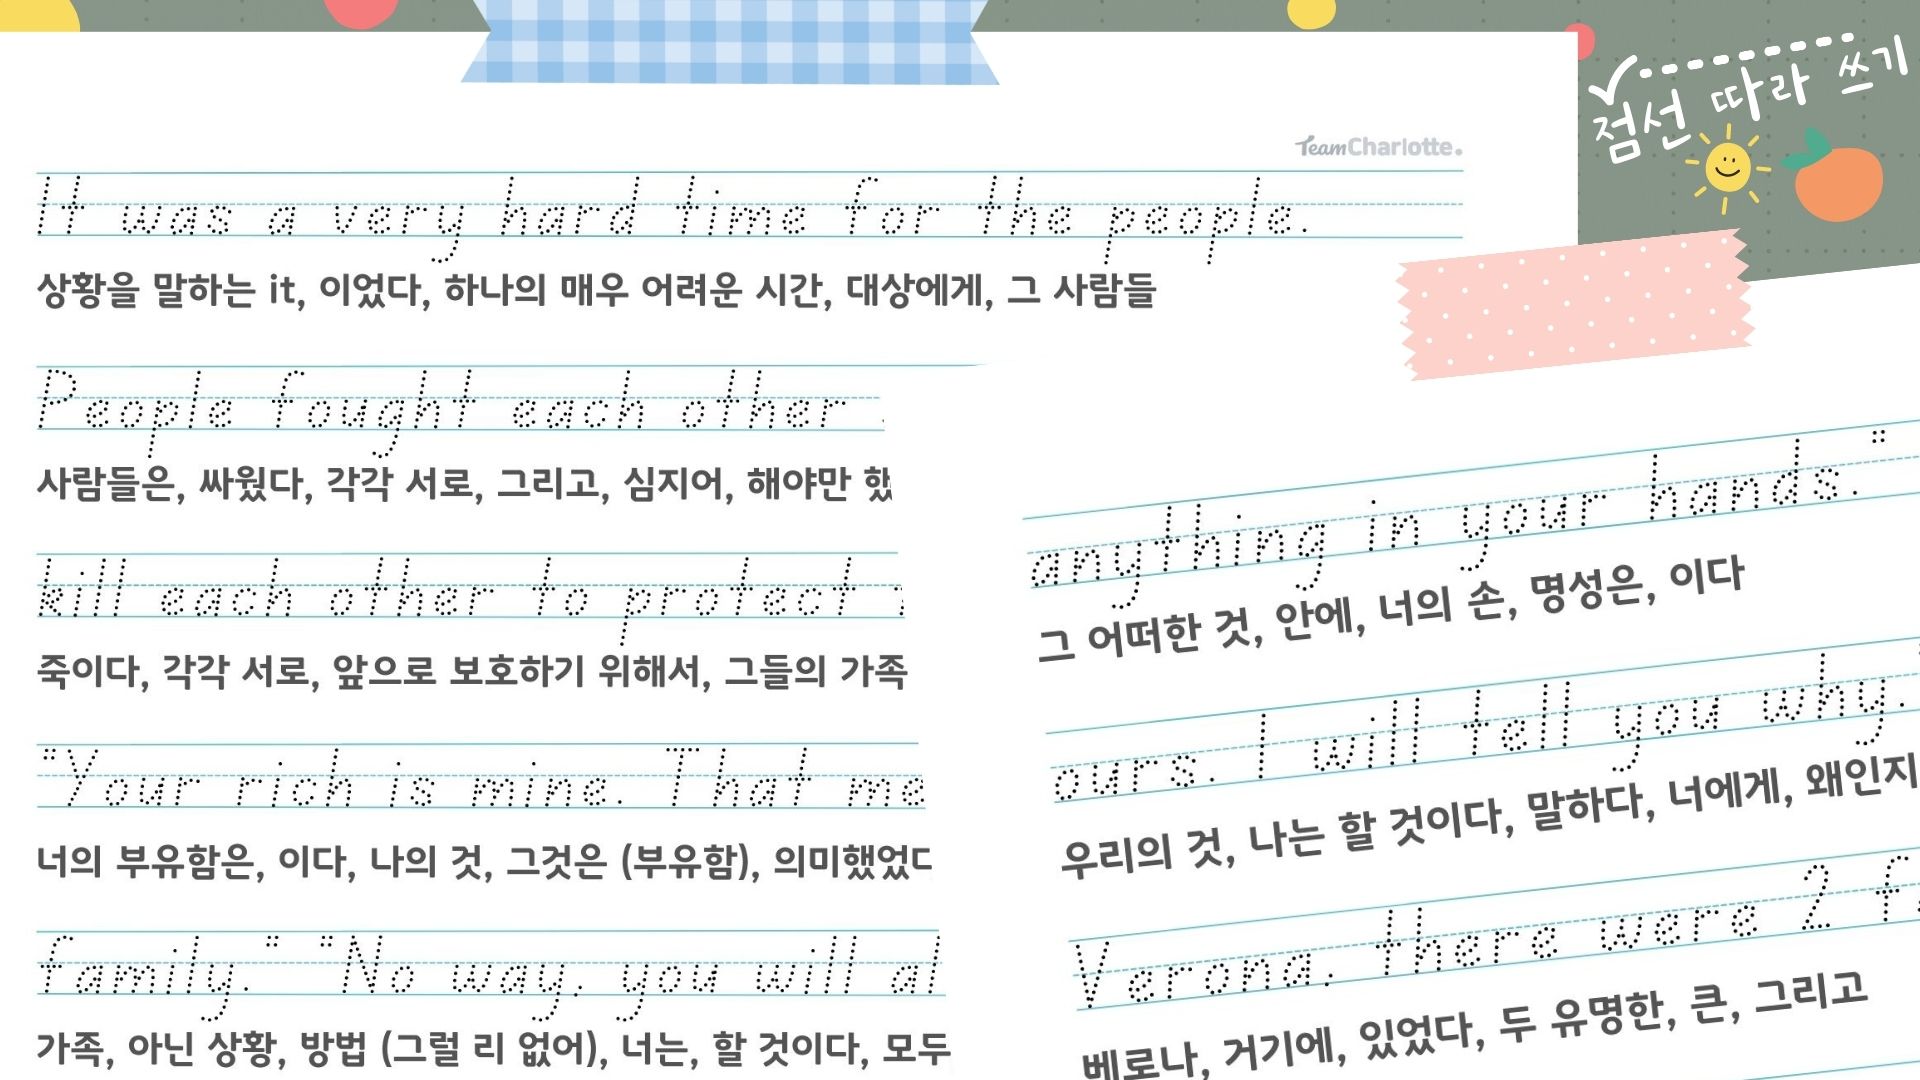 점선 따라 쓰기
TeamCharlotte.
It was a very hard time for the people.
상황을 말하는 it, 이었다, 하나의 매우 어려운 시간, 대상에게, 그 사람들
People fought each other
사람들은, 싸웠다, 각각 서로, 그리고, 심지어, 해야만 했
kill each other to protect
죽이다, 각각 서로, 앞으로 보호하기 위해서, 그들의 가족
"Your rich is mine. That me
너의 부유함은, 이다, 나의 것, 그것은 (부유함), 의미했었다
family." "No way, you will al
가족, 아닌 상황, 방법 (그럴 리 없어), 너는, 할 것이다, 모두
anything in your hands."
그 어떠한 것, 안에, 너의 손, 명성은, 이다
ours. I will tell you why.
우리의 것, 나는 할 것이다, 말하다, 너에게, 왜인지
Verona, there were 2 f
베로나, 거기에, 있었다, 두 유명한, 큰, 그리고